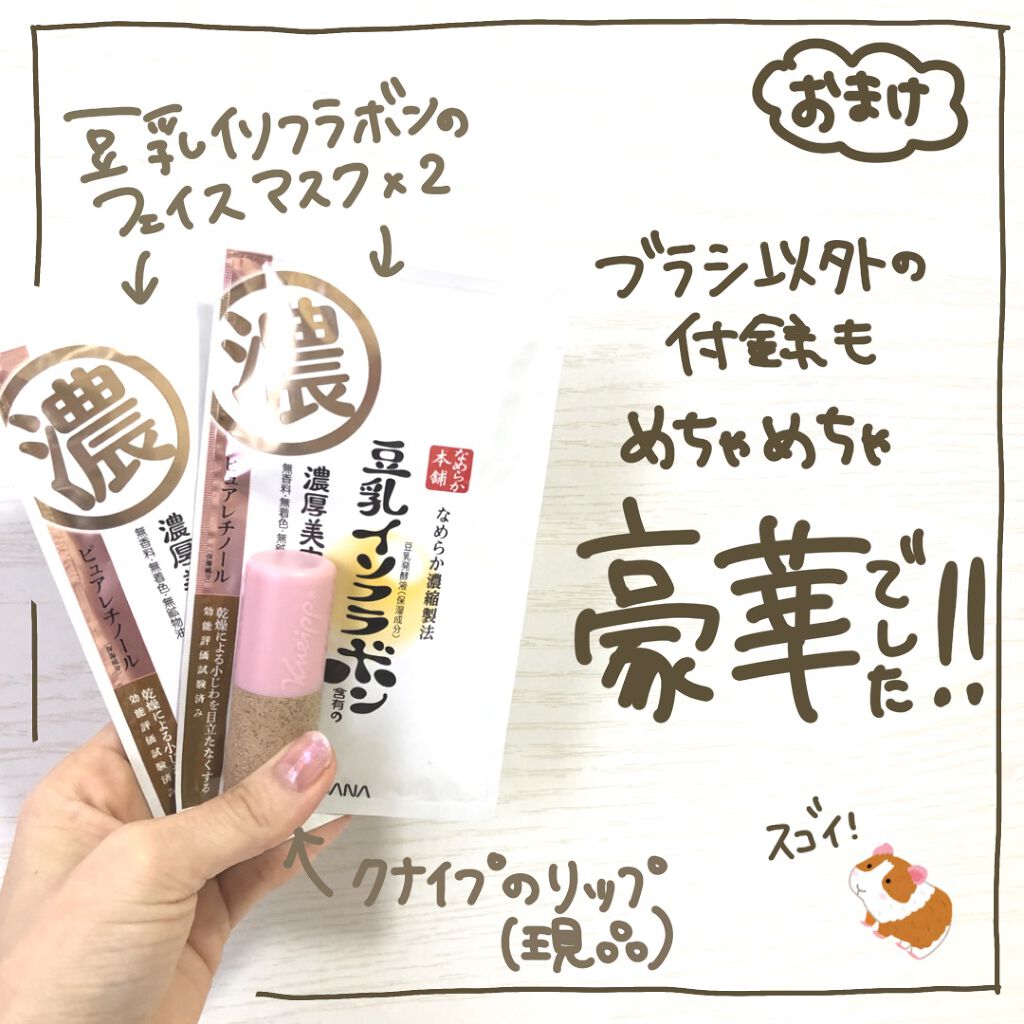 おまけ
豆乳イソフラボンの
フェイスマスク×2
ブラシ以外の
付録も
めちゃめちゃ
豪華でした!!
濃
濃厚
無香料・無着色・無鉱物油
ピュアレチノール
保湿成分
乾燥による小じ
効能評価試験済み
濃
なめらか
本舗
なめらか濃縮製法
豆乳発酵液(保湿成分)
豆乳イソフラボン
含有の
濃厚美
無香料・無着色・無鉱
ピュアレチノール
保湿成分
乾燥による小じわを目立たなくする
効能評価試験済み
Kneipp
ANA
スゴイ!
クナイプのリップ
(現品)